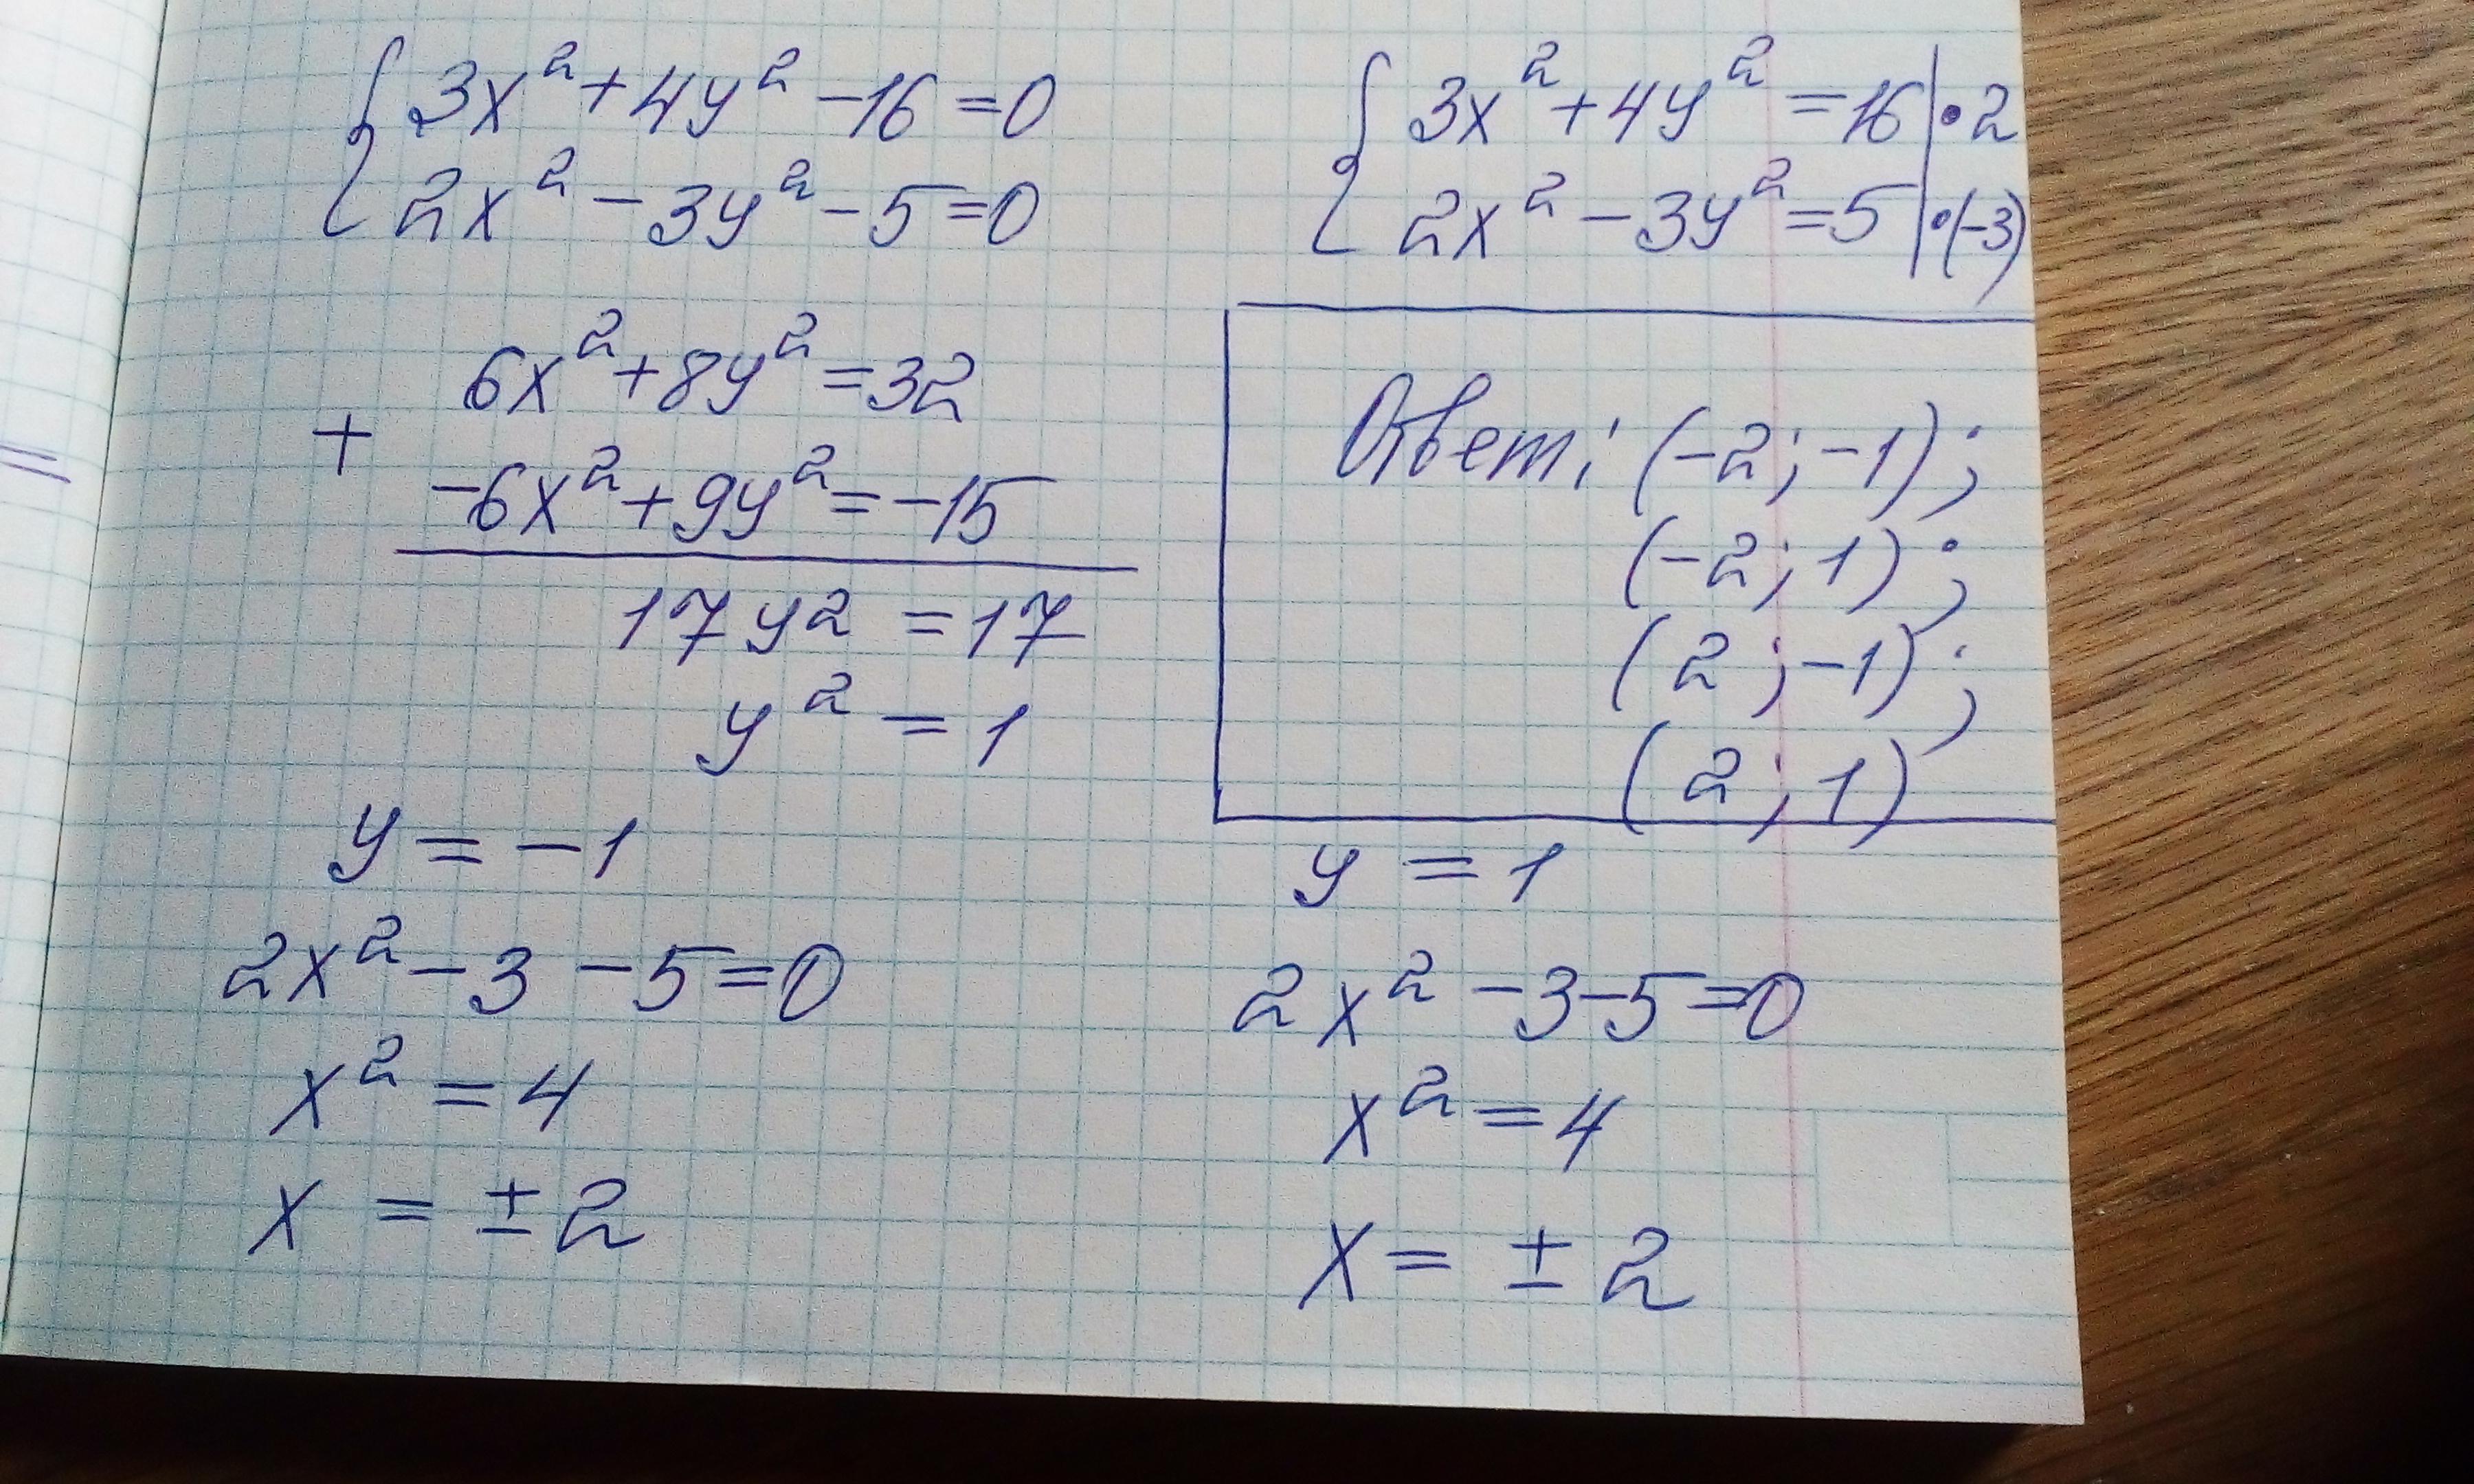 3x² + 4y² - 16 = 0
2x² - 3y² - 5 = 0
3x² + 4y² = 16 | • 2
2x² - 3y² = 5 | • (-3)
6x² + 8y² = 32
+
-6x² + 9y² = -15
17y2 = 17
y² = 1
Ответ: (-2; -1);
(-2; 1);
(2; -1);
(2; 1)
y = -1
2x² - 3 - 5 = 0
x² = 4
x = ± 2
y = 1
2x² - 3 - 5 = 0
x² = 4
x = ± 2